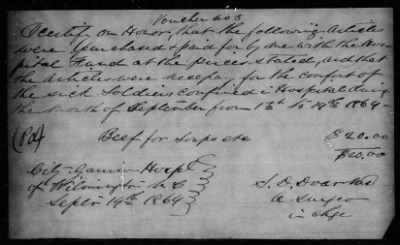 Voucher no 3
I certify on Honor, that the following Articles
were purchased & paid for by me with the Hos-
pital Fund at the prices stated, and that
the Articles were necessary for the comfort of
the sick Soldiers confined in Hospital during
the month of September from 1st to 14th 1864
(Pd) Beef for Soup etc $20.00
$20.00
City Garrison Hospl
of Wilmington N C
Septr 14th 1864
S. D.
A Surgeon
in chge